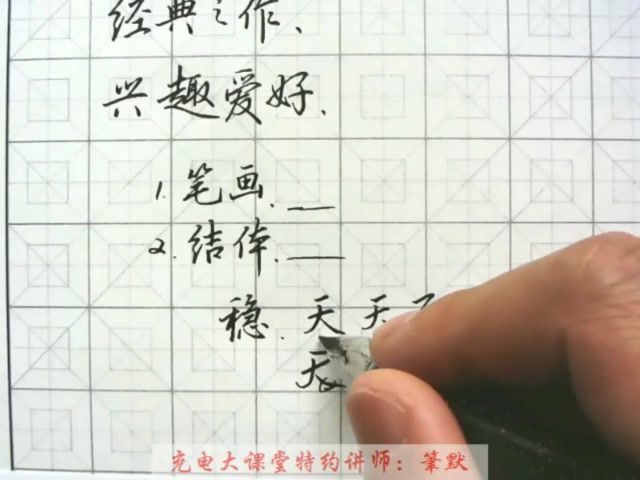 经典之作、
兴趣爱好.
1.笔画.
2.结体.
稳.天天
天
充电大课堂特约讲师：筆默